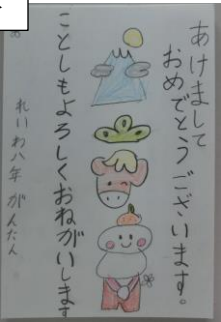 あけまして
おめでとうございます。
ことしもよろしくおねがいします
れいわ八年 がんたん